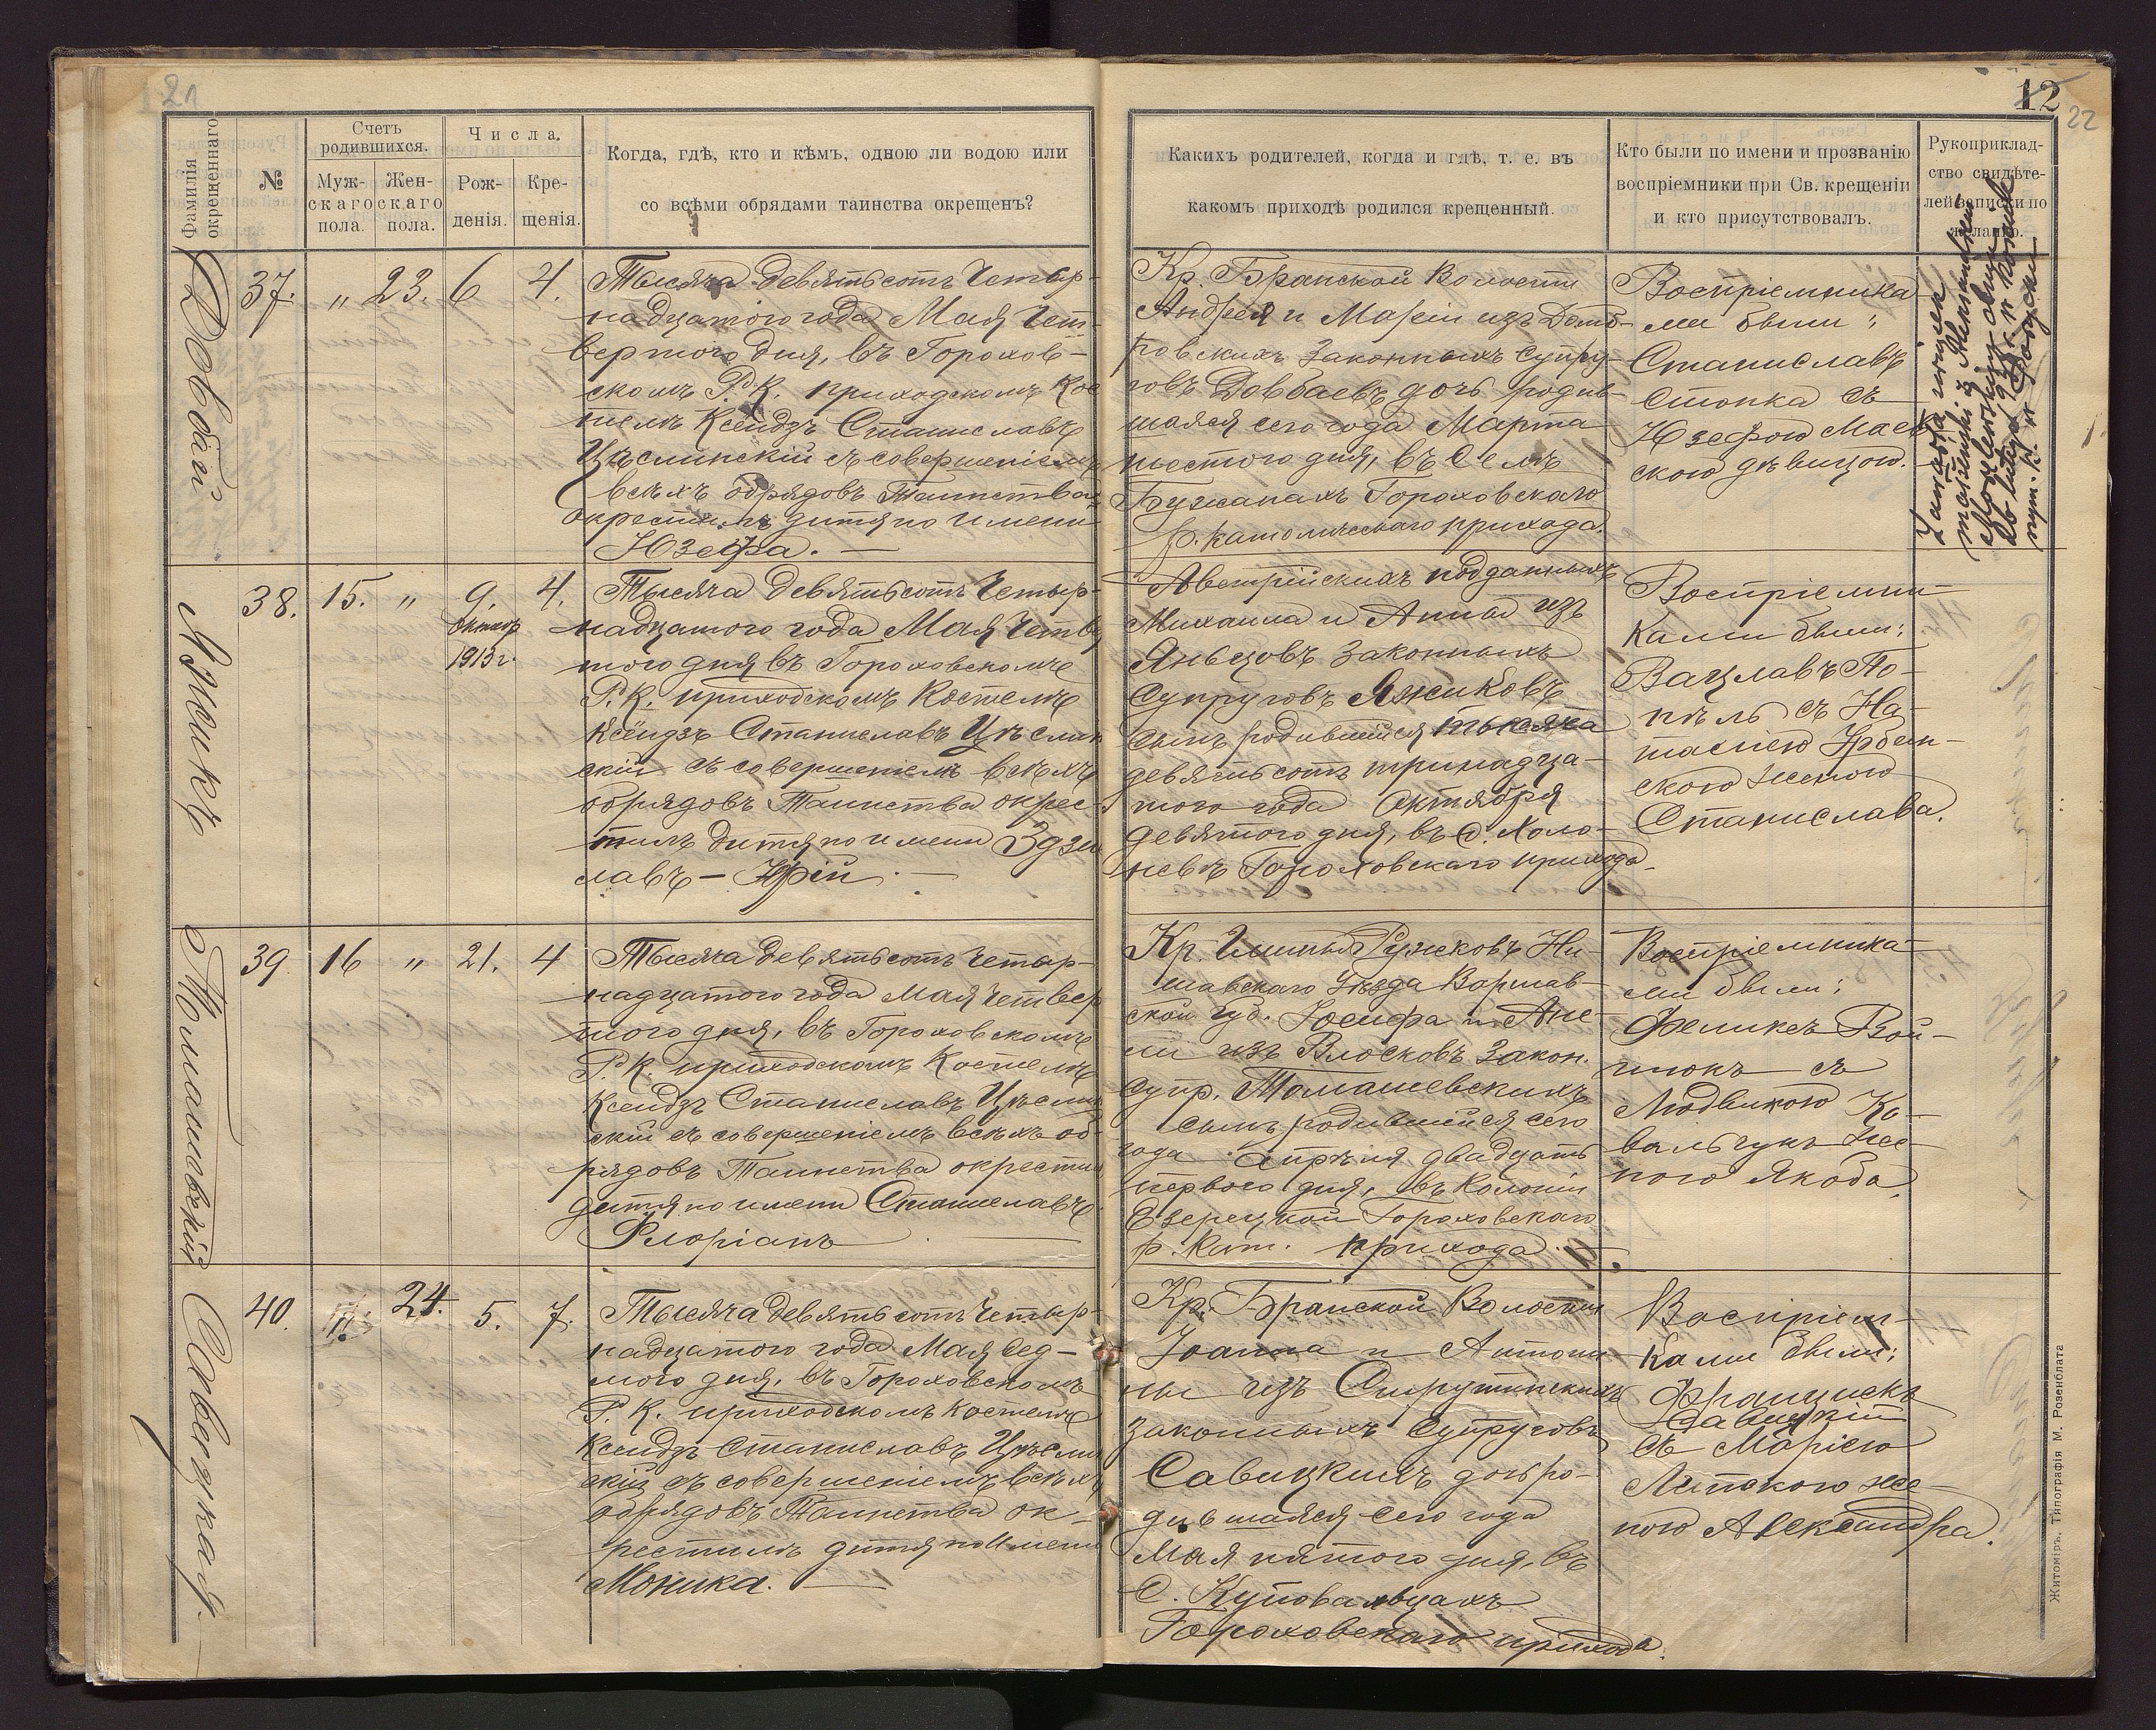 21
12
22
Фамилія окрещеннаго
№
Счетъ родившихся.
Муж-
скаго
пола.
Жен-
скаго
пола.
Числа.
Рож-
денія.
Кре-
щенія.
Когда, гдѣ, кто и кѣмъ, одною ли водою или
со всѣми обрядами таинства окрещенъ?
Какихъ родителей, когда и гдѣ, т. е. въ
какомъ приходѣ родился крещенный.
Кто были по имени и прозванію
воспріемники при Св. крещеніи
и кто присутствовалъ.
Рукоприклад-
ство свидѣте-
лей записки по
желанію.
Довбай
37. " 23. 6 4.
Тысяча девятьсотъ четыр-
надцатого года Мая чет-
вертого дня, въ Горохов-
скомъ Р. К. приходскомъ Кос
телѣ Ксендзъ Станиславъ
Цѣслинскій съ совершеніемъ
всѣхъ обрядовъ Таинства
окрестилъ дитя по имени
Юзефа. —
Кр. Бранской Волости
Андрея и Маріи изъ Домб-
ровскихъ законныхъ супру-
говъ Довбаевъ дочь родив-
шаяся сего года Марта
шестого дня, въ Селѣ
Бужанахъ Гороховскаго
р. католическаго прихода.
Воспріемника-
ми были:
Станиславъ
Стопка съ
Юзефою Маев
скою дѣвицою.
Яжикъ
38. 15. " 9. октяб. 1913 г. 4.
Тысяча девятьсотъ четыр-
надцатого года Мая четв
того дня въ Гороховскомъ
Р. К. приходскомъ Костелѣ
Ксендзъ Станиславъ Цѣслин
скій съ совершеніемъ всѣхъ
обрядовъ Таинства окрес-
тилъ дитя по имени Здзи
славъ - Юрій. —
Австрійскихъ подданныхъ
Михаила и Анны изъ
Яньцовъ законныхъ
супруговъ Яжиковъ
сынъ родившійся тысяча
девятьсотъ тринадца-
того года Октября
девятого дня, въ с. Холо-
невѣ Гороховскаго прихода.
Воспріемни-
ками были:
Вацлавъ По-
пѣль съ На-
таліею Урбан-
скою женою
Станислава.
Томашевскій
39. 16 " 21. 4
Тысяча девятьсотъ четыр-
надцатого года Мая четвер
того дня, въ Гороховскомъ
Р. К. приходскомъ Костелѣ
Ксендзъ Станиславъ Цѣслин
скій съ совершеніемъ всѣхъ об-
рядовъ Таинства окрестилъ
дитя по имени Станиславъ
Флоріанъ
Кр. Гмины Ружковъ Ни-
шавскаго Уѣзда Варшав-
ской Губ. Іосифа и Ане-
ли изъ Влосковъ закон.
супр. Томашевскихъ
сынъ родившійся сего
года Апрѣля двадцать
перваго дня, въ Колоніи
Езерецкой Гороховскаго
р. Кат. прихода.
Воспріемника-
ми были:
Феликсъ Вой-
тюкъ съ
Людвикою Ко-
вальчукъ же-
ною Якоба.
Савецкая.
40. 24. 5. 7.
Тысяча девятьсотъ четыр-
надцатого года Мая сед-
мого дня, въ Гороховскомъ
Р. К. приходскомъ Костелѣ
Ксендзъ Станиславъ Цѣслин
скій съ совершеніемъ всѣхъ
обрядовъ Таинства ок-
рестилъ дитя по имени
Моника. —
Кр. Бранской Волости
Іоанна и Антони-
ны изъ
законныхъ супруговъ
Савицкихъ дочь ро-
дившаяся сего года
Мая пятого дня, въ
с. Куповальцахъ
Гороховскаго прихода.
Воспріем-
ками были:
Францискъ
Савицкій
съ Маріею
Литскою же-
ною Александра.
Житоміръ. Типографія М. Розенблата